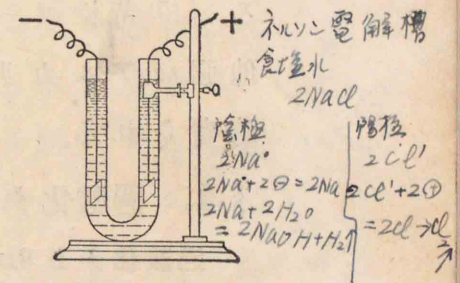 − +
ネルソン電解槽
食塩水
2NaCl
陰極
2Na•
2Na•+2⊖=2Na
2Na+2H₂O
=2NaOH+H₂↑
陽極
2Cl'
2Cl'+2⊕
=2Cl→Cl₂↑